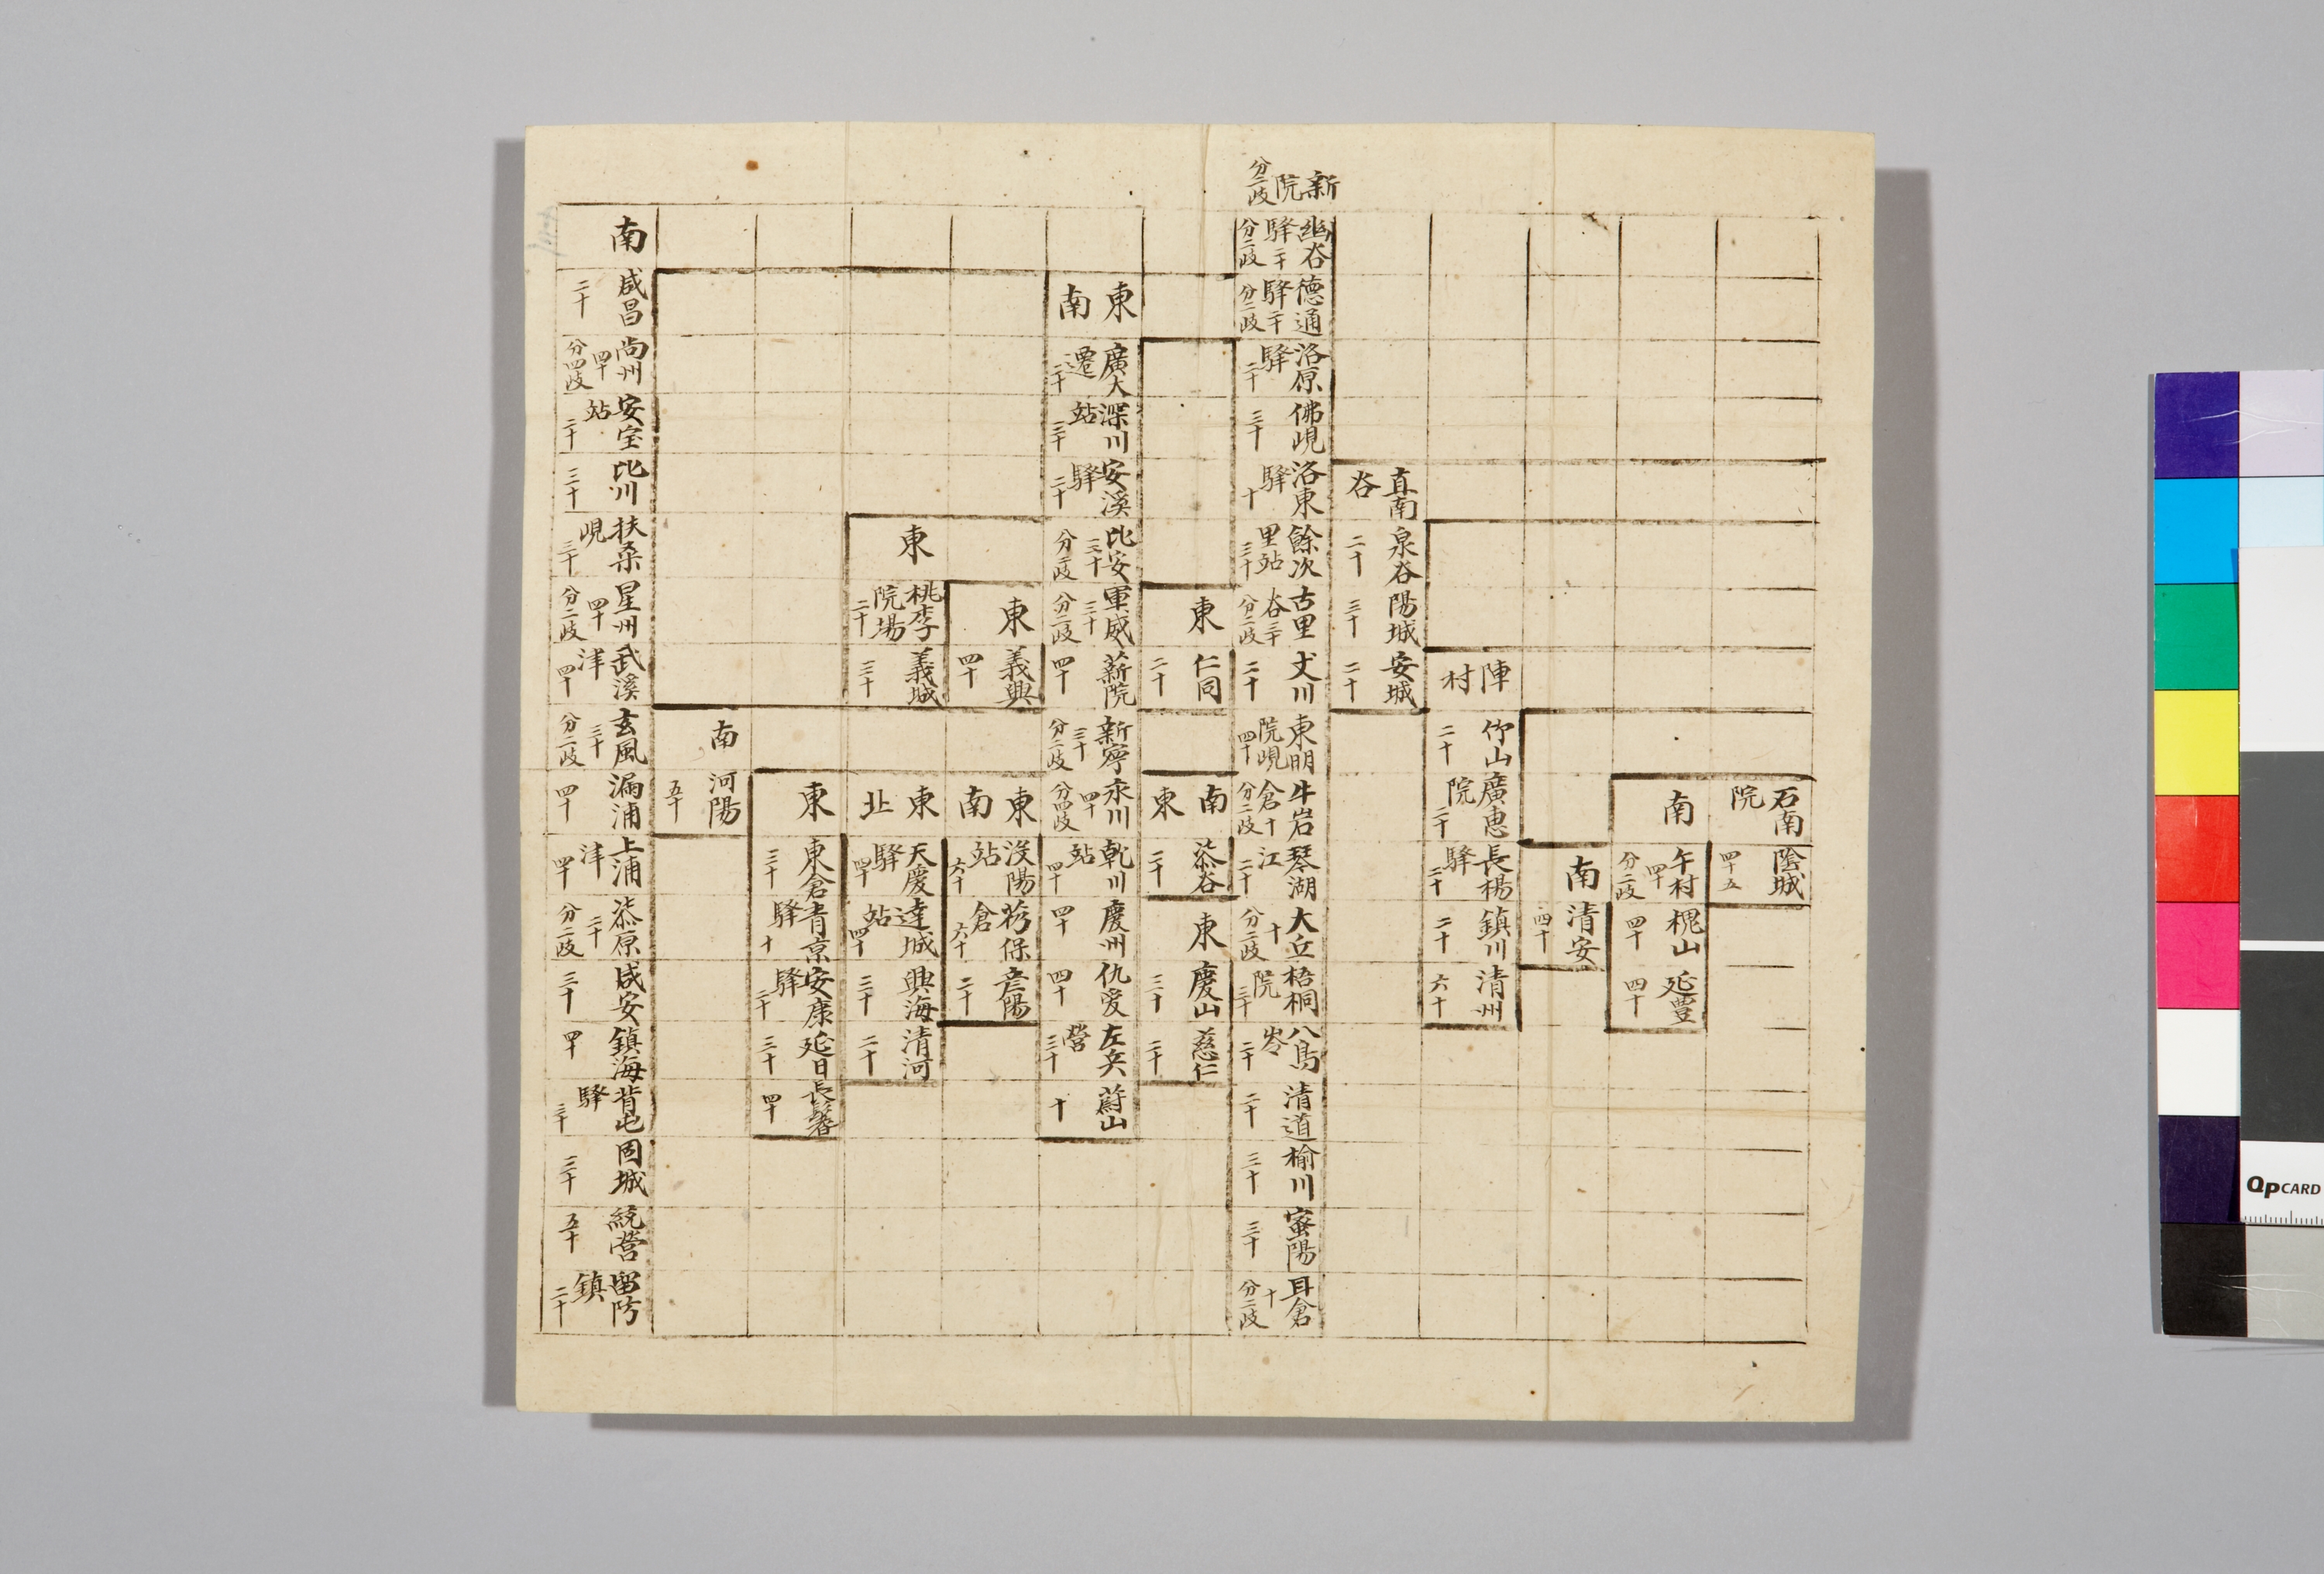 石南院
陰城 四十五
南
午村 四十 分二歧
槐山 四十
延豊 四十
南
清安 四十
陣村
竹山 二十
廣惠院 二十
長楊驛 二十
鎮川 二十
清州 六十
直南谷
泉谷 二十
陽城 三十
安城 二十
新院 分二歧
幽谷驛 二十 分二歧
德通驛 二十 分二歧
洛原驛 二十
佛峴 三十
洛東驛 十
餘次里站 三十
古里谷 三十 分二歧
丈川 二十
東明院峴 四十
牛岩倉 十 分二歧
琴湖江 二十
大丘 十 分二歧
梧桐院 三十
八鳥岺 二十
清道 二十
榆川 三十
密陽 三十
耳倉 十 分二歧
東
仁同 二十
南東
柒谷 二十
東
慶山 三十
慈仁 二十
東南
廣大遷 二十
深川站 三十
安溪驛 二十
比安 三十 分二歧
軍威 三十 分二歧
薪院 四十
新寧 三十 分二歧
永川 四十 分四歧
乾川站 四十
慶州 四十
仇爱 四十
左兵營 三十
蔚山 十
東
義興 四十
東南
站 六十
倉 六十
彦陽 二十
東
桃李院場 二十
義城 三十
東北
天慶驛 四十
達城站 四十
興海 三十
清河 二十
東
東倉 三十
青京驛 十
安康驛 二十
延日 三十
長鬐 四十
南
河陽 五十
南
咸昌 二十
尚州 四十 分四歧
安宝站 二十
比川 三十
扶桑峴 三十
星州 四十 分二歧
武溪津 四十
玄風 三十 分二歧
漏浦 四十
上浦津 四十
柒原 二十 分二歧
咸安 三十
鎮海 四十
背屯驛 三十
固城 三十
統营 五十
留防鎮 二十
QpCARD